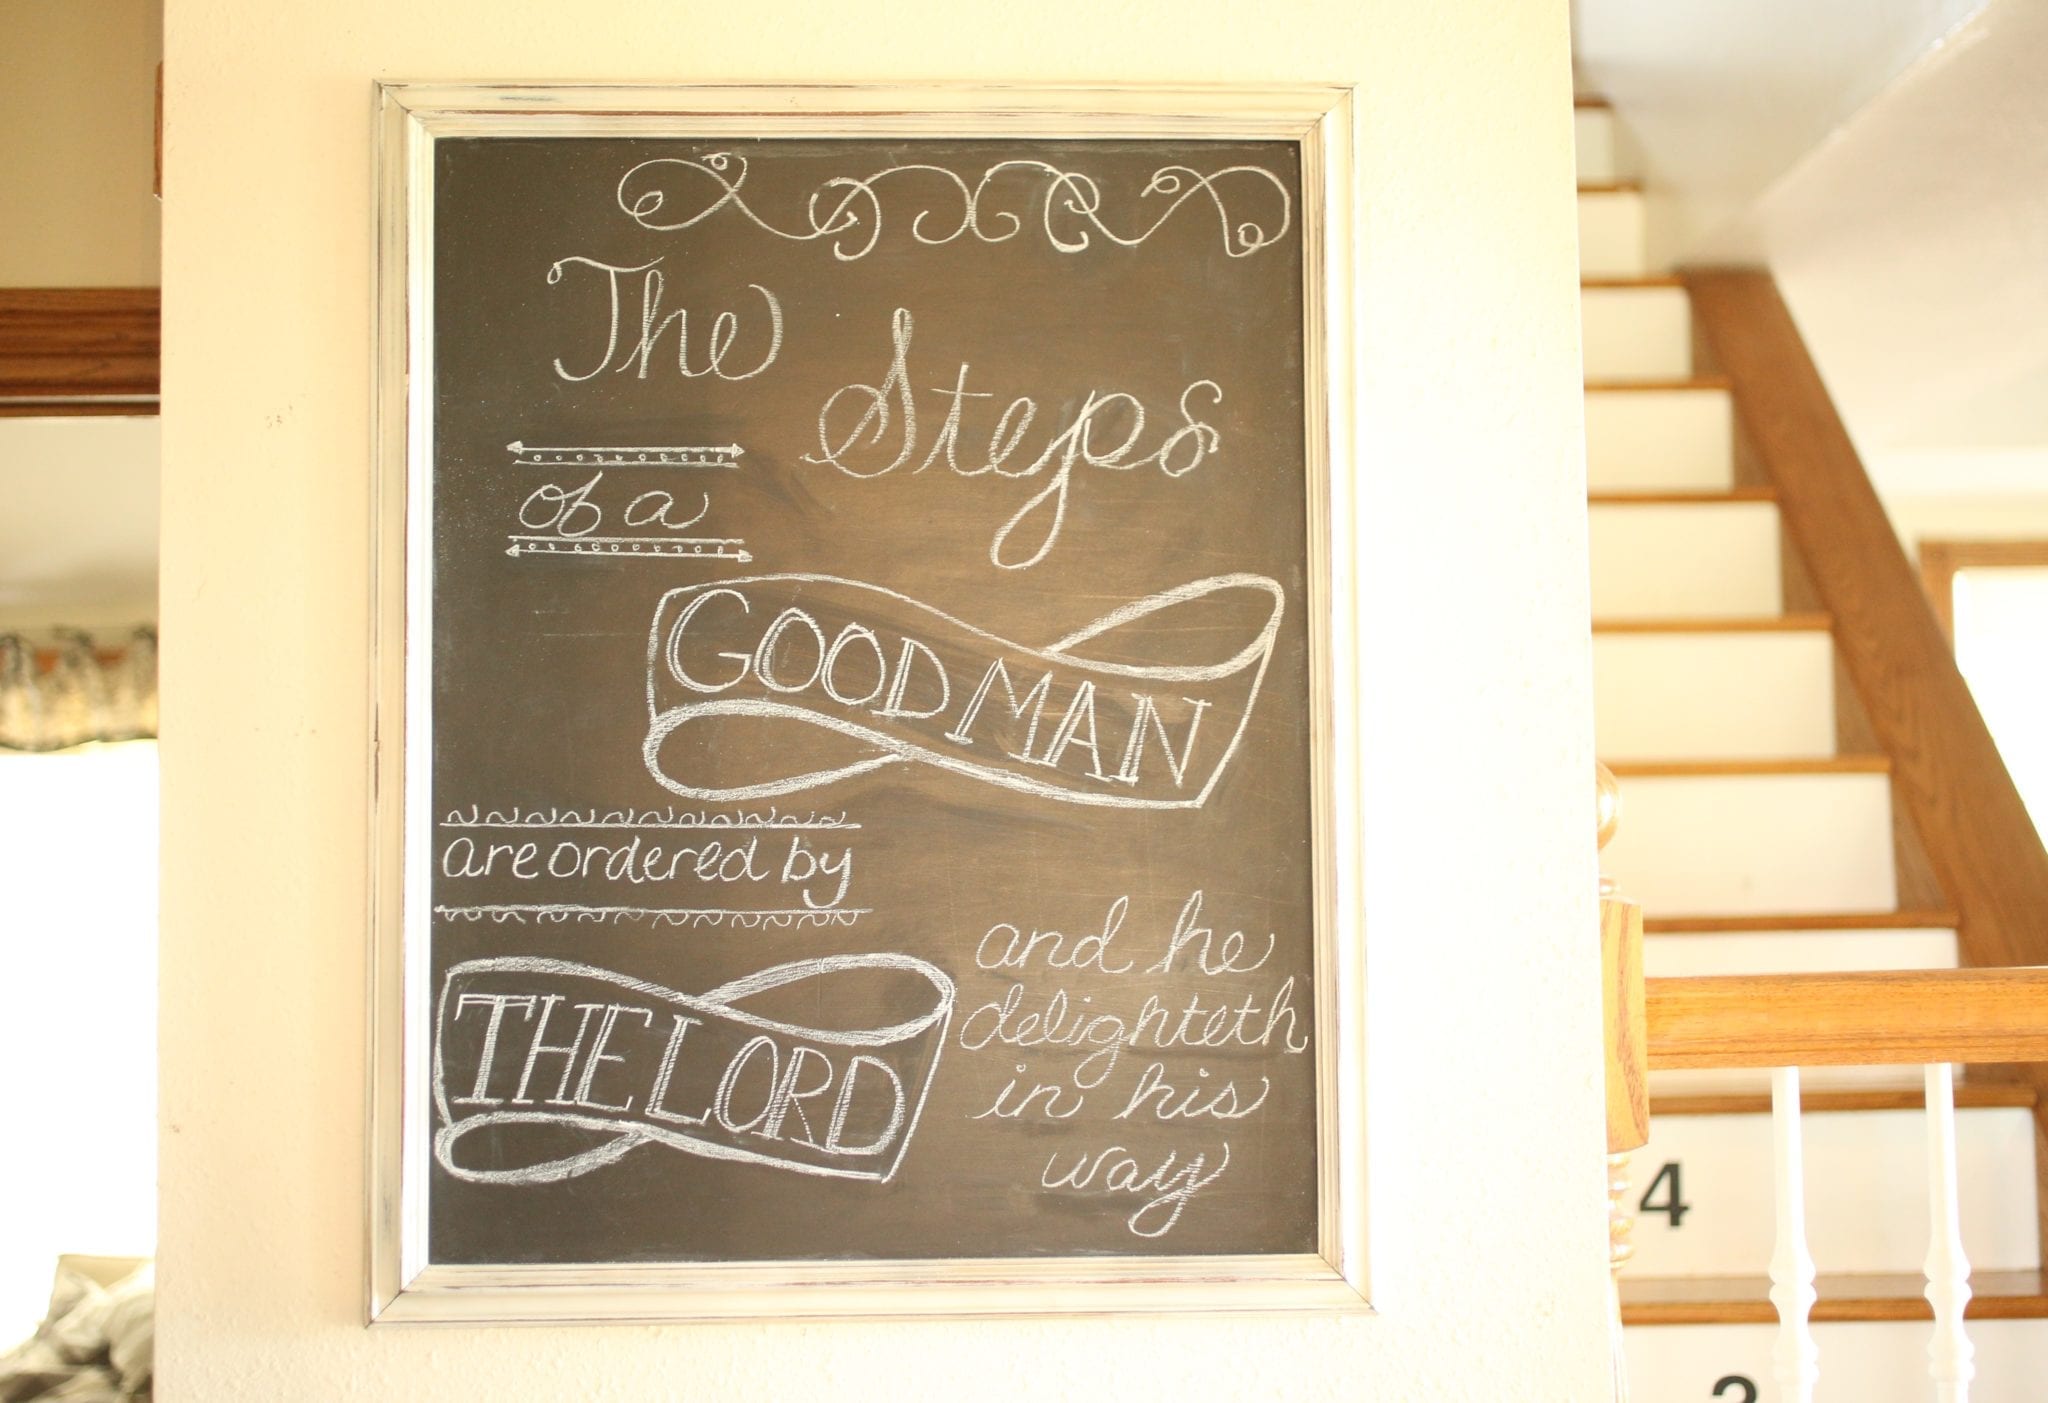 The
Steps
of a
GOOD MAN
are ordered by
THE LORD
and he
delighteth
in his
way
4